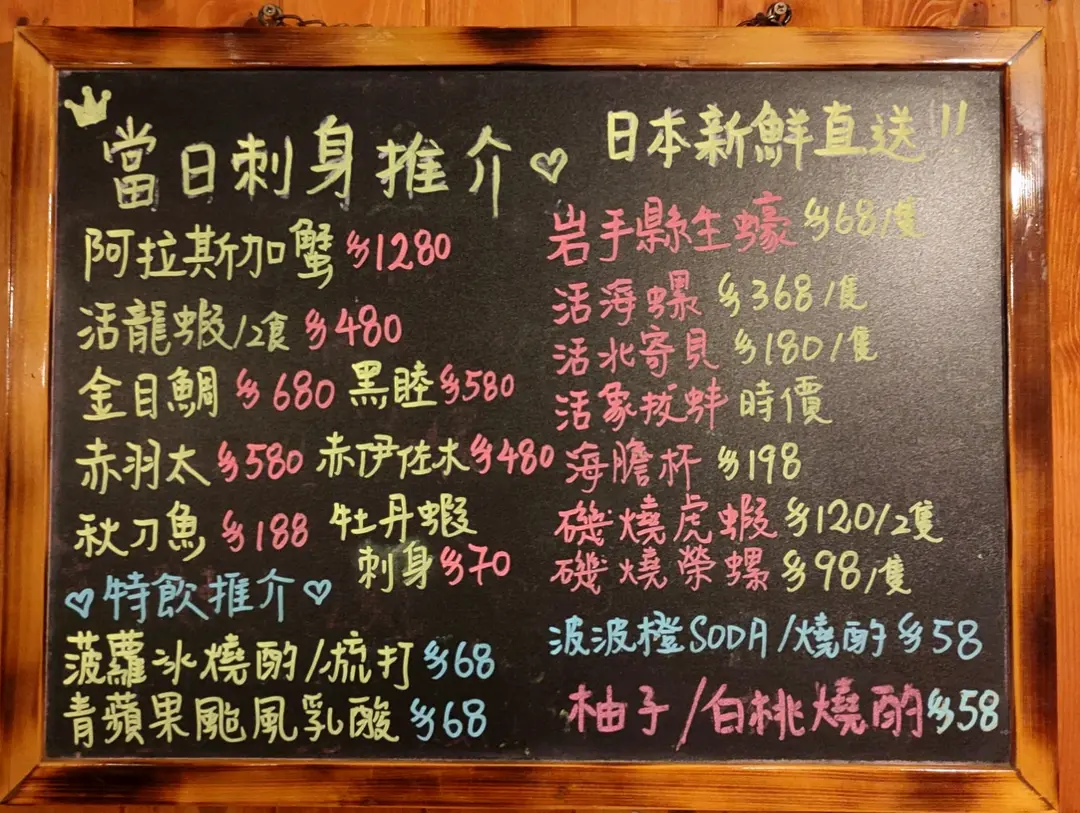 當日刺身推介♡
日本新鮮直送!!
阿拉斯加蟹 $1280
活龍蝦/2食 $480
金目鯛 $680 黑睦$580
赤羽太 $580 赤伊佐木$480
秋刀魚 $188 牡丹蝦
刺身$70
岩手縣生蠔 $68/隻
活海螺 $368/隻
活北寄貝 $180/隻
活象拔蚌 時價
海膽杯 $198
磯燒虎蝦 $120/2隻
磯燒榮螺 $98/隻
♡特飲推介♡
菠蘿冰燒酌/梳打 $68
青蘋果颱風乳酸 $68
波波橙SODA/燒酌 $58
柚子/白桃燒酌$58